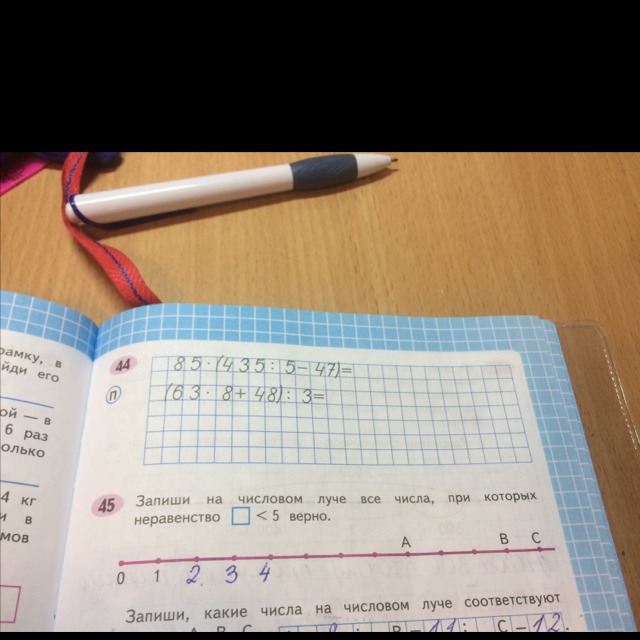 рамку, в
йди его
ой — в
6 раз
олько
4 кг
и в
мов
44
85·(435:5−47)=
п
(63·8+48):3=
45 Запиши на числовом луче все числа, при которых
неравенство □ < 5 верно.
A B C
0 1 2 3 4
Запиши, какие числа на числовом луче соответствуют
B – 11; C – 12.